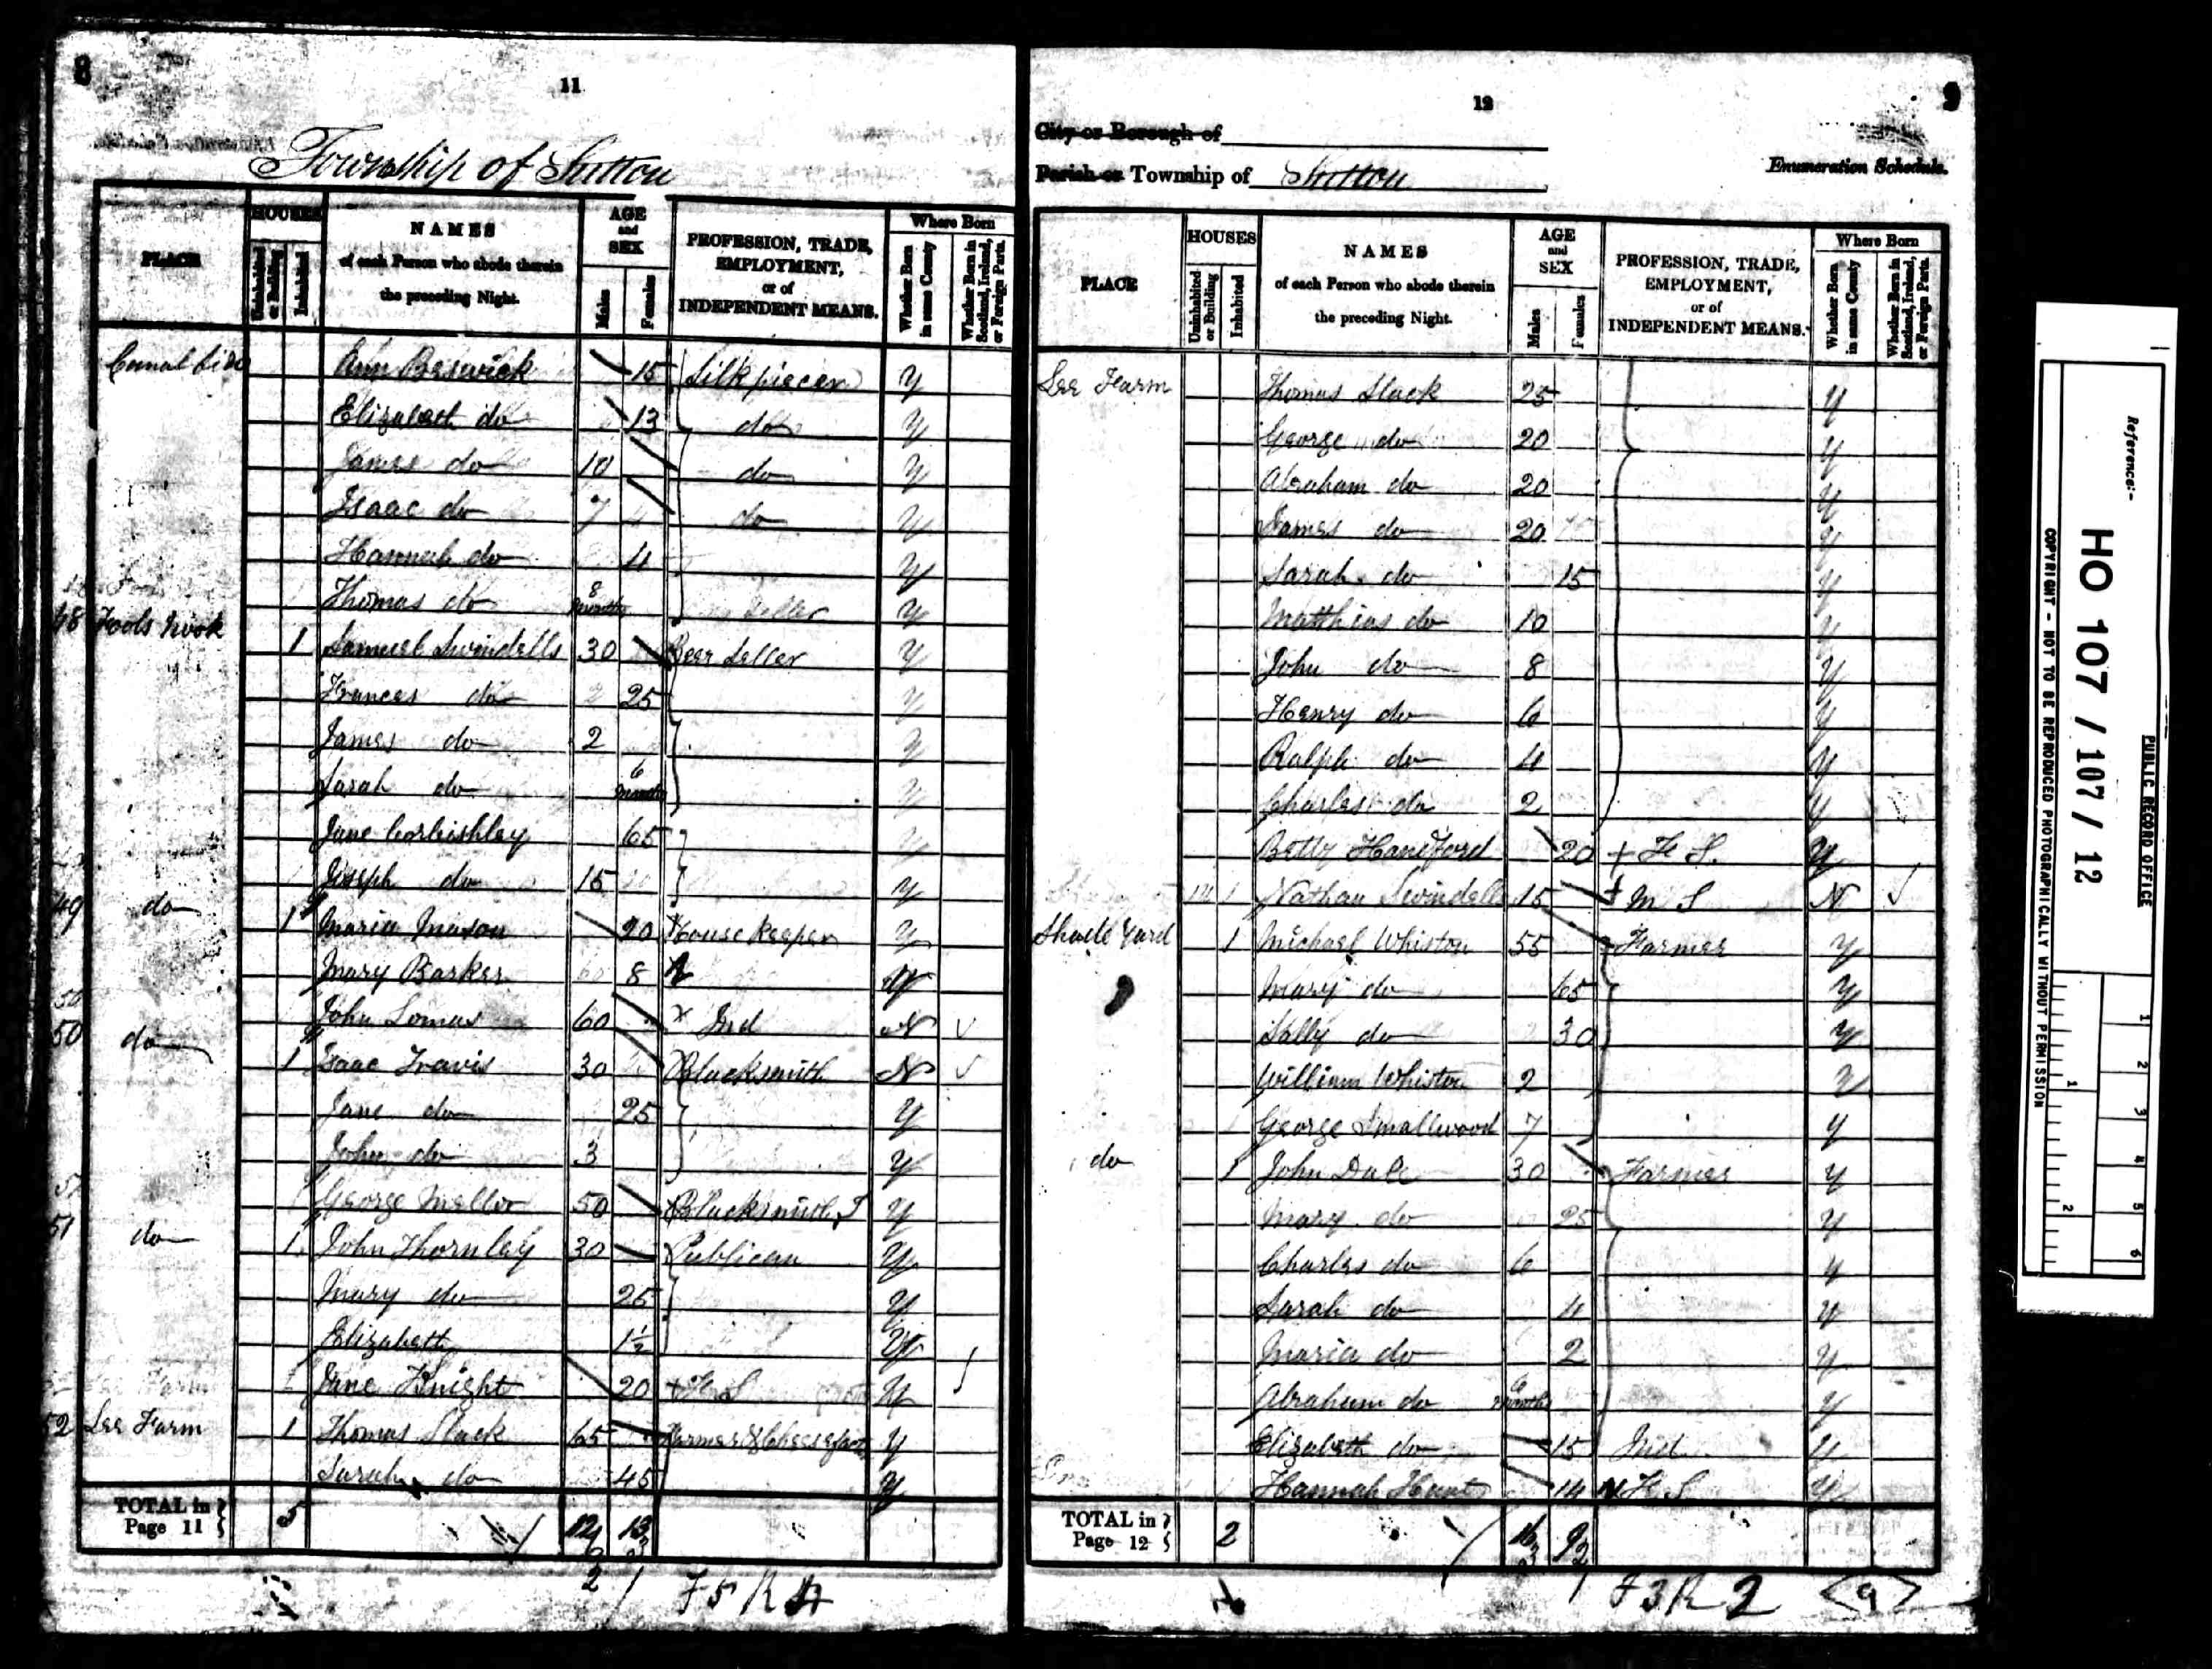 8
11
Township of Sutton
PLACE
HOUSES
Uninhabited or Building
Inhabited
NAMES of each Person who abode therein the preceding Night.
AGE and SEX
Males
Females
PROFESSION, TRADE, EMPLOYMENT, or of INDEPENDENT MEANS.
Where Born
Whether Born in same County
Whether Born in Scotland, Ireland, or Foreign Parts.
Canal Side Ann Beswick 15 Silk piecer Y
Elizabeth do 13 do Y
James do 10 do Y
Isaac do 7 do Y
Hannah do 4 Y
Thomas do 8 months Y
48 Fools Nook 1 Samuel Swindells 30 Beer Seller Y
Frances do 25 Y
James do 2 Y
Sarah do 6 months Y
Jane Corbishley 65 Y
Joseph do 15 Y
49 do 1 Maria Mason 20 House keeper Y
Mary Barker 8 Y
John Lomas 60 Ind N
50 do 1 Isaac Travis 30 Blacksmith N
Jane do 25 Y
John do 3 Y
George Mellor 50 Blacksmith J Y
51 do 1 John Thornley 30 Publican Y
Mary do 25 Y
Elizabeth 1½ Y
Jane Knight 20 F S Y
52 Lee Farm 1 Thomas Slack 65 Farmer & Cheesefac Y
Sarah do 45 Y
TOTAL in Page 11 5 12 13
2 F 5 R
12
9
City or Borough of
Parish or Township of Sutton
Enumeration Schedule.
PLACE
HOUSES
Uninhabited or Building
Inhabited
NAMES of each Person who abode therein the preceding Night.
AGE and SEX
Males
Females
PROFESSION, TRADE, EMPLOYMENT, or of INDEPENDENT MEANS.
Where Born
Whether Born in same County
Whether Born in Scotland, Ireland, or Foreign Parts.
Lee Farm Thomas Slack 25 Y
George do 20 Y
Abraham do 20 Y
James do 20 Y
Sarah do 15 Y
Matthias do 10 Y
John do 8 Y
Henry do 6 Y
Ralph do 4 Y
Charles do 2 Y
Betty Handford 20 F S. Y
Nathan Swindells 15 M S N
Yard 1 Michael Whiston 55 Farmer Y
Mary do 65 Y
Sally do 30 Y
William Whiston 2 Y
George Smallwood 7 Y
do 1 John Dale 30 Farmer Y
Mary do 25 Y
Charles do 6 Y
Sarah do 4 Y
Maria do 2 Y
Abraham do 6 months Y
Elizabeth do 15 Ind Y
Hannah Hunt 14 F S Y
TOTAL in Page 12 2 16 9
F 3 R 2 9
PUBLIC RECORD OFFICE
Reference:-
HO 107 / 107 / 12
COPYRIGHT - NOT TO BE REPRODUCED PHOTOGRAPHICALLY WITHOUT PERMISSION
1 2 3 4 5 6
1 2